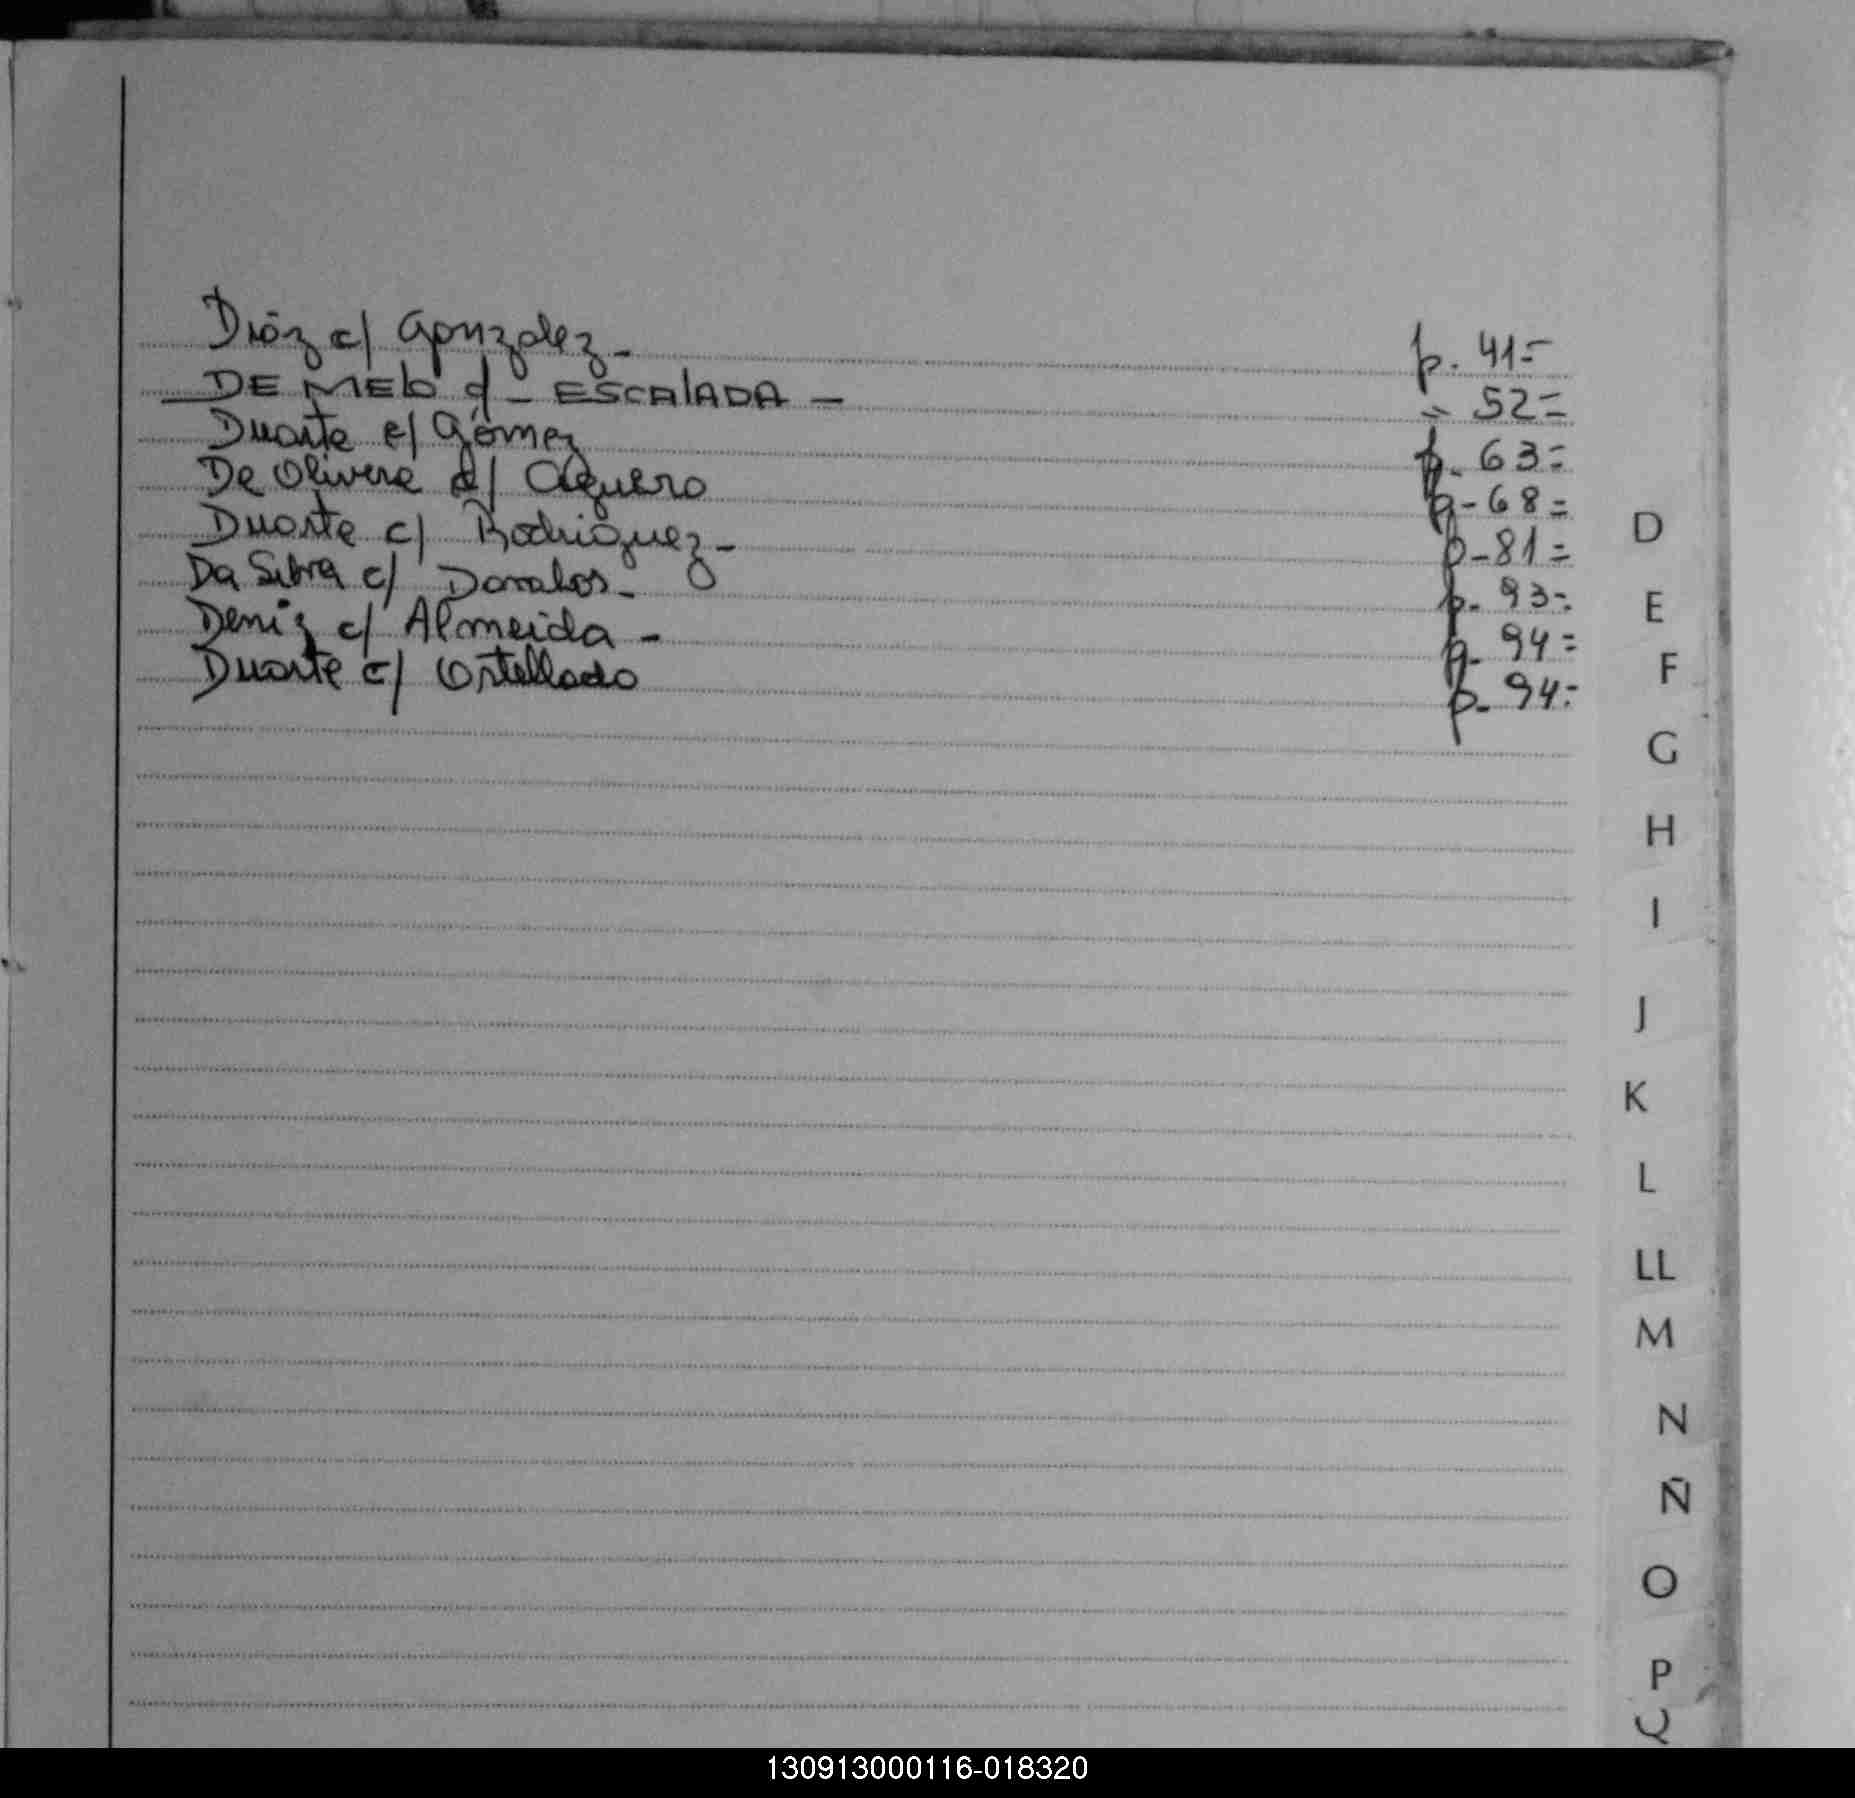 Diáz c/ Gonzalez - p. 41=
DE MElo c/ - ESCAlADA - " 52=
Duarte c/ Gómez p. 63=
De Olivera c/ Aguero p-68=
Duarte c/ Rodriguez - p-81=
Da Silva c/ Davalos - p. 93=
Deniz c/ Almeida - p. 94=
Duarte c/ Ortellado p. 94=
D
E
F
G
H
I
J
K
L
LL
M
N
Ñ
O
P
Q
130913000116-018320